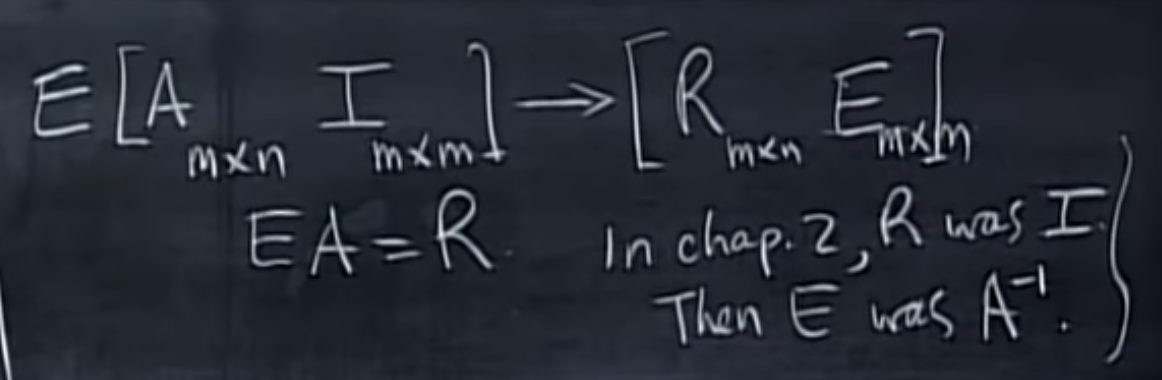 E[A m×n I m×m] → [R m×n E m×m]
EA = R. In chap. 2, R was I.
Then E was A⁻¹.